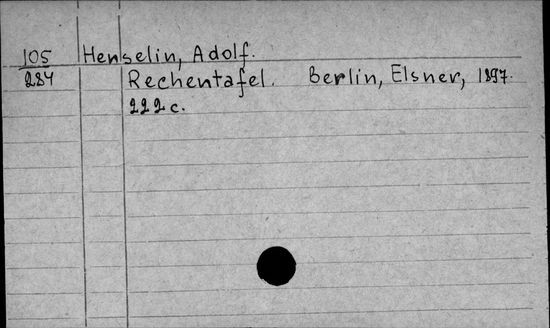 105 Henselin, Adolf.
284 Rechentafel. Berlin, Elsner, 1897.
222 c.